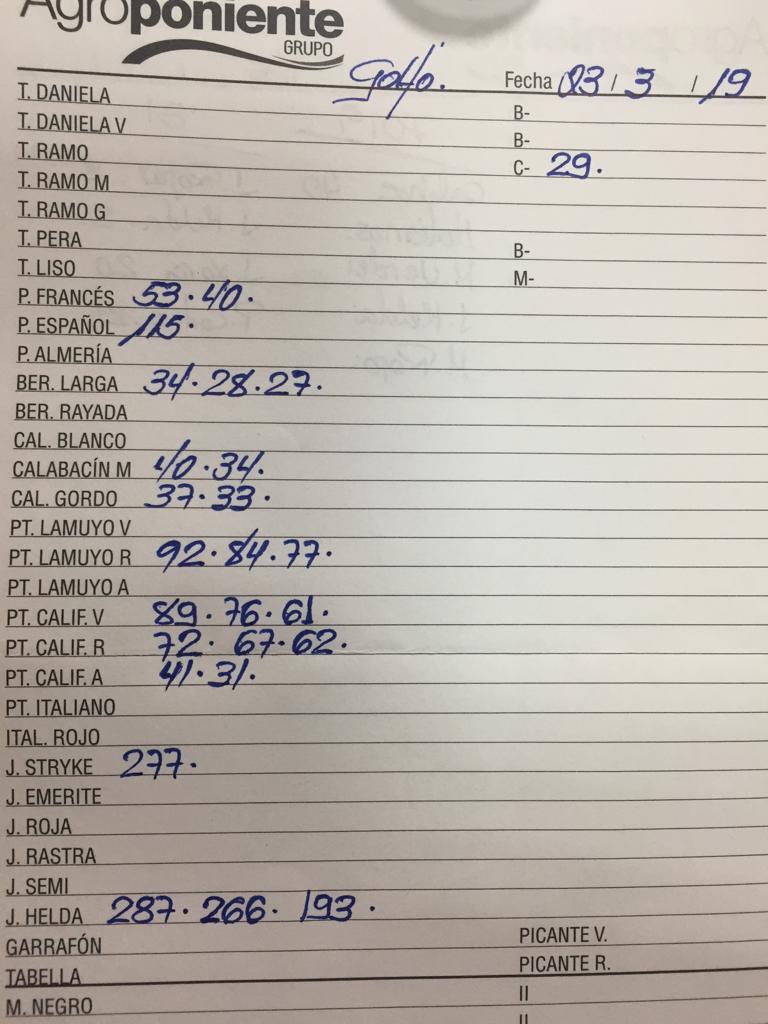 Agroponiente
GRUPO
Golfo. Fecha 03 / 3 / 19
T. DANIELA B-
T. DANIELA V B-
T. RAMO C- 29.
T. RAMO M
T. RAMO G
T. PERA B-
T. LISO M-
P. FRANCÉS 53·40.
P. ESPAÑOL 115.
P. ALMERÍA
BER. LARGA 34·28·27.
BER. RAYADA
CAL. BLANCO
CALABACÍN M 40·34.
CAL. GORDO 37·33.
PT. LAMUYO V
PT. LAMUYO R 92·84·77.
PT. LAMUYO A
PT. CALIF. V 89·76·61.
PT. CALIF. R 72·67·62.
PT. CALIF. A 41·31.
PT. ITALIANO
ITAL. ROJO
J. STRYKE 277.
J. EMERITE
J. ROJA
J. RASTRA
J. SEMI
J. HELDA 287·266·193.
GARRAFÓN PICANTE V.
TABELLA PICANTE R.
M. NEGRO II
II